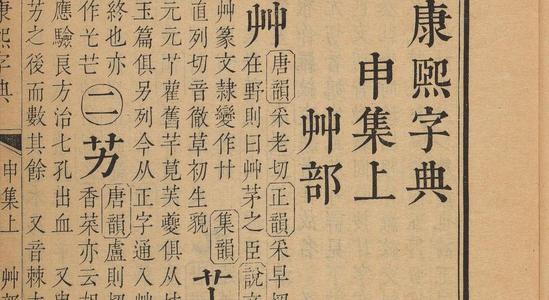 康熙字典
申集上
艸部
艸 唐韻 采老切 正韻 采早切
在野則曰艸茅之臣 說文
艸篆文隷變作廾 集韻
直列切音徹草初生貌
元元丫雚舊芉莧芙夔俱从
玉篇俱另列今从正字通入艸
終也亦
作芒 二 艻 唐韻 盧則切
香菜亦云胡
應驗良方治七孔出血 又
芳之後而數其餘 又音棘
康熙字典 申集上 艸部